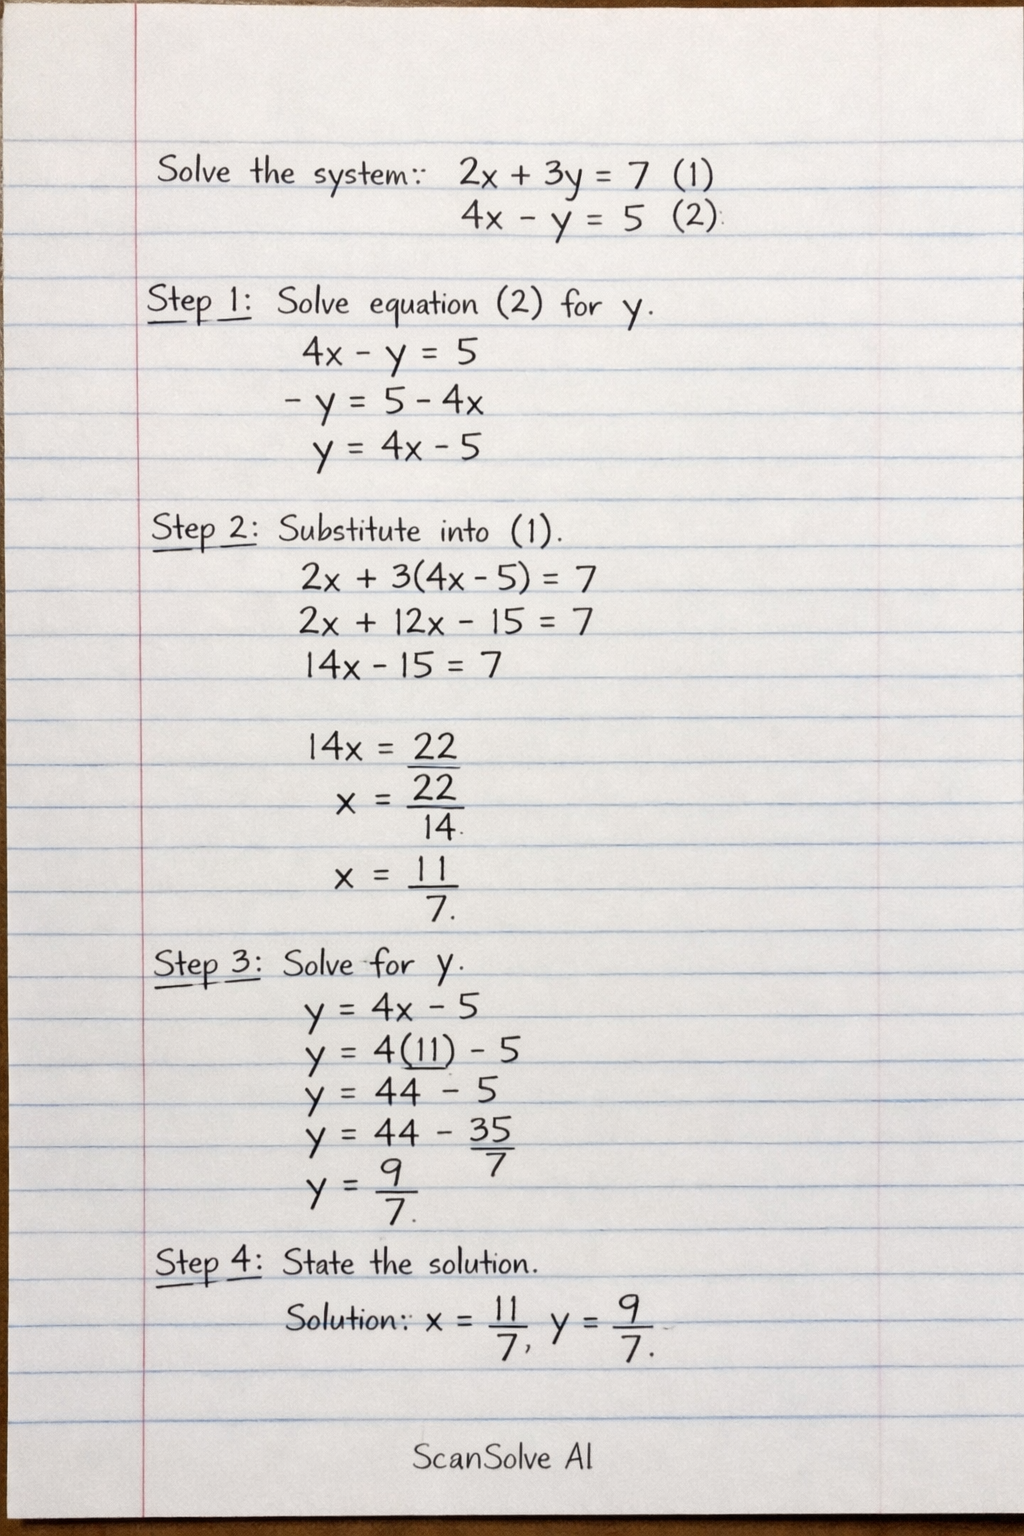 Solve the system: 2x + 3y = 7 (1)
4x - y = 5 (2)
Step 1: Solve equation (2) for y.
4x - y = 5
- y = 5 - 4x
y = 4x - 5
Step 2: Substitute into (1).
2x + 3(4x - 5) = 7
2x + 12x - 15 = 7
14x - 15 = 7
14x = 22
x = 22/14.
x = 11/7.
Step 3: Solve for y.
y = 4x - 5
y = 4(11) - 5
y = 44 - 5
y = 44 - 35/7
y = 9/7.
Step 4: State the solution.
Solution: x = 11/7, y = 9/7.
ScanSolve AI